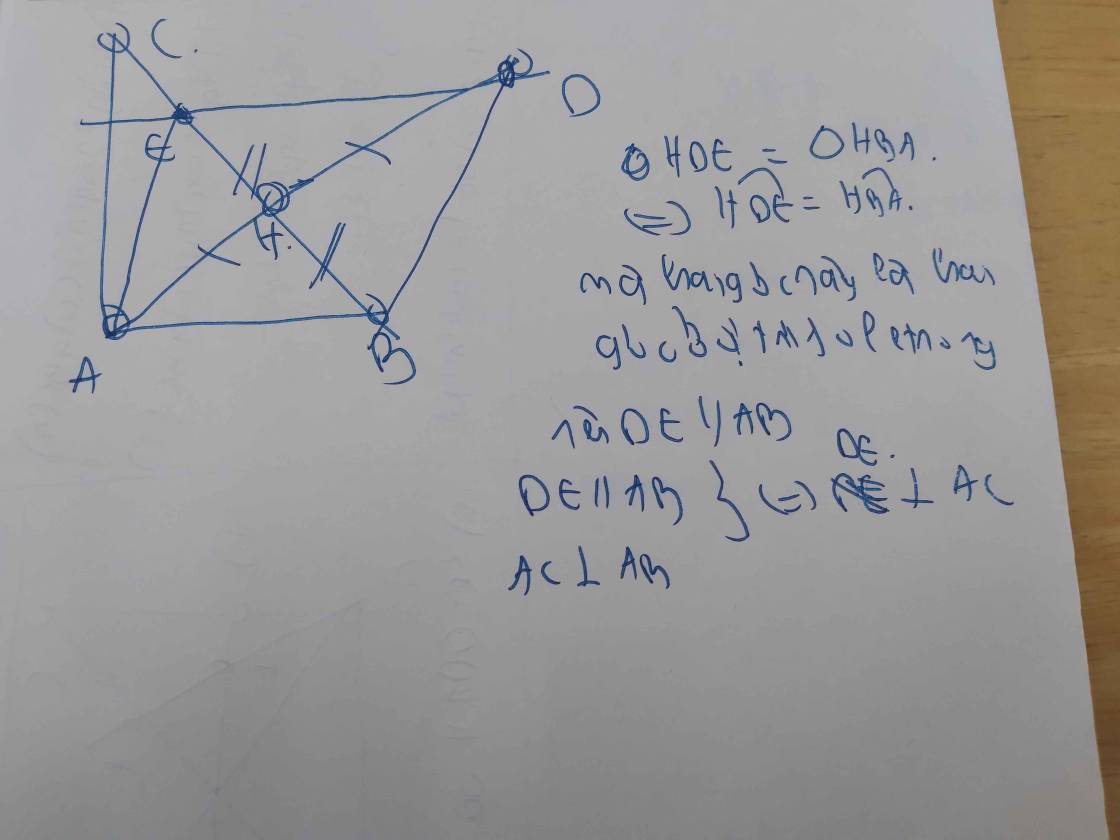 C.
D
E
H.
A
B
△ HDE = △ HBA.
(=) HDE = HBA.
mà hai góc này là hai
góc ở vị trí so le trong
nên DE // AB
DE.
DE // AB } (=) ⊥ AC
AC ⊥ AB